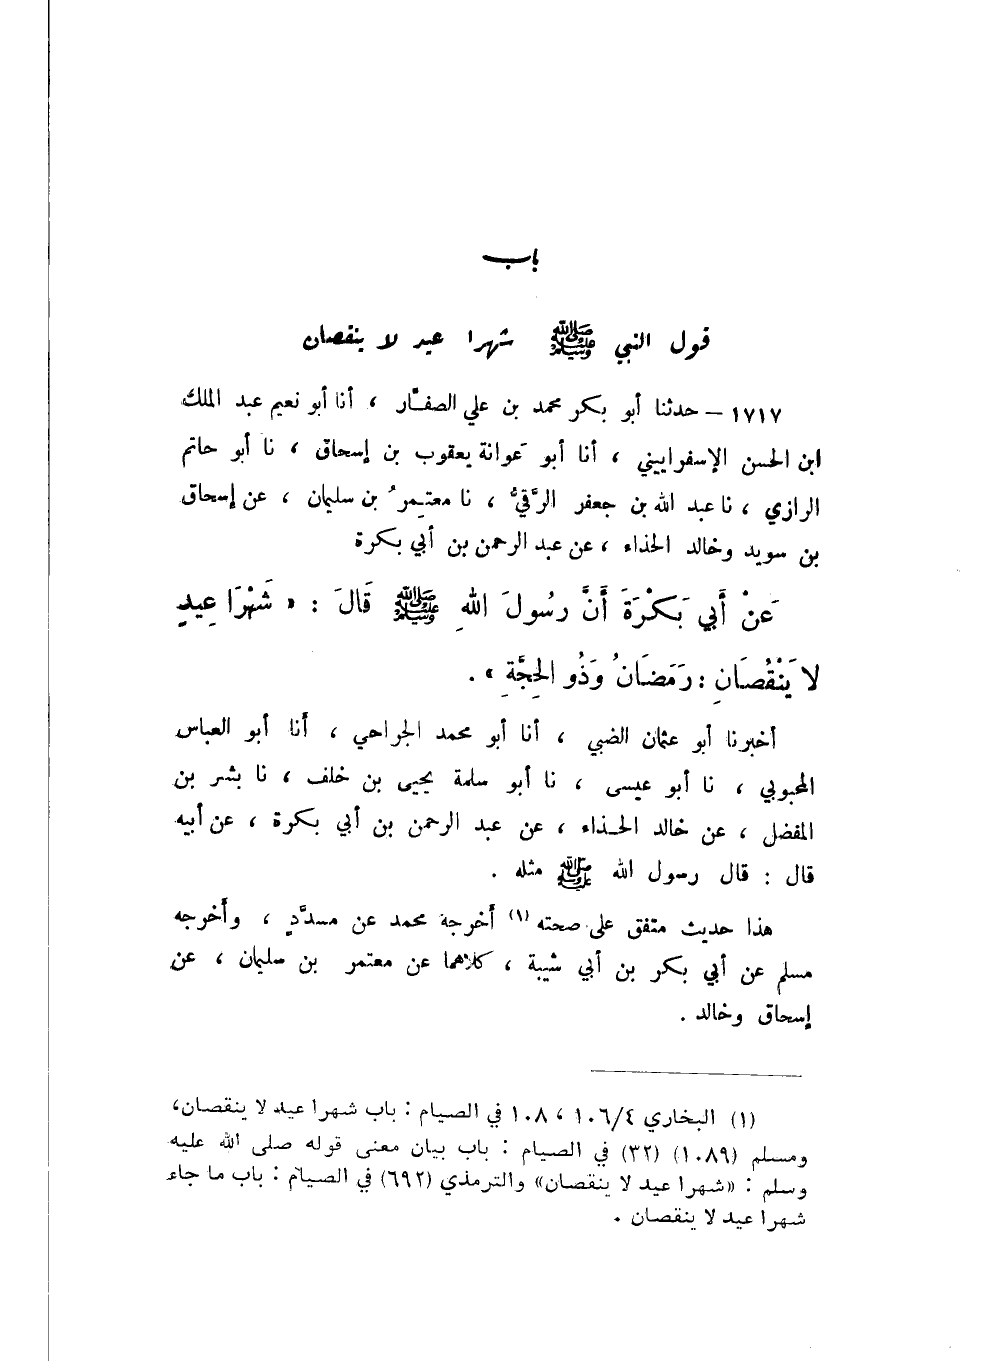 باب
قول النبي ﷺ شهرا عيد لا ينقصان
١٧١٧ – حدثنا أبو بكر محمد بن علي الصفّار ، أنا أبو نعيم عبد الملك
ابن الحسن الإسفراييني ، أنا أبو عوانة يعقوب بن إسحاق ، نا أبو حاتم
الرازي ، نا عبد الله بن جعفر الرَّقيُّ ، نا معتمرُ بن سليمان ، عن إسحاق
بن سويد وخالد الحذاء ، عن عبد الرحمن بن أبي بكرة
عَنْ أَبي بَكْرَةَ أَنَّ رسُولَ اللهِ ﷺ قَالَ : « شَهْرَا عِيدٍ
لا يَنْقُصَانِ : رَمَضَانُ وَذُو الحِجَّةِ » .
أخبرنا أبو عثمان الضبي ، أنا أبو محمد الجراحي ، أنا أبو العباس
المحبوبي ، نا أبو عيسى ، نا أبو سلمة يحيى بن خلف ، نا بشر بن
المفضل ، عن خالد الحذاء ، عن عبد الرحمن بن أبي بكرة ، عن أبيه
قال : قال رسول الله ﷺ مثله .
هذا حديث متفق على صحته (١) أخرجه محمد عن مسدَّدٍ ، وأخرجه
مسلم عن أبي بكر بن أبي شيبة ، كلاهما عن معتمر بن سليمان ، عن
إسحاق وخالد .
(١) البخاري ١٠٦/٤ ، ١٠٨ في الصيام : باب شهرا عيد لا ينقصان،
ومسلم (١٠٨٩) (٣٢) في الصيام : باب بيان معنى قوله صلى الله عليه
وسلم : «شهرا عيد لا ينقصان» والترمذي (٦٩٢) في الصيام : باب ما جاء
شهرا عيد لا ينقصان .